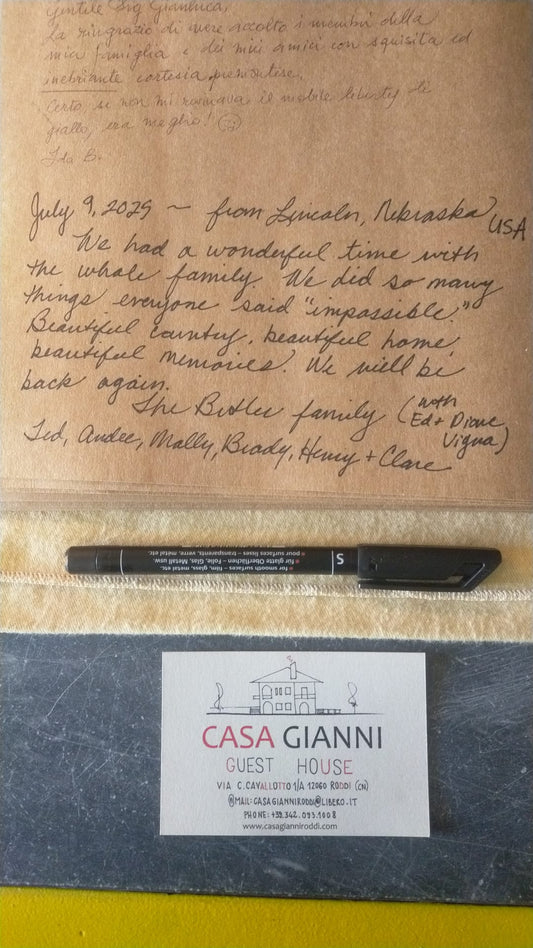 Gentile Sig Gianluca,
la ringrazio di avere accolto i membri della
mia famiglia e dei miei amici con squisita ed
inebriante cortesia piemontese.
Certo, se non mi rovinava il mobile liberty di
giallo, era meglio! ☹
Ida B.
July 9, 2029 ~ from Lincoln, Nebraska
USA
We had a wonderful time with
the whole family. We did so many
things everyone said "impossible."
Beautiful country, beautiful home,
beautiful memories. We will be
back again.
The Butler family (with
Ed + Diane
Vigna)
Ted, Andee, Molly, Brody, Henry + Clare
S
for smooth surfaces – film, glass, metal etc.
für glatte Oberflächen – Folie, Glas, Metall usw.
pour surfaces lisses – transparents, verre, métal etc.
CASA GIANNI
GUEST HOUSE
VIA C.CAVALLOTTO 1/A 12060 RODDI (CN)
@MAIL: CASAGIANNIRODDI@LIBERO.IT
PHONE: +39.342.093.1008
www.casagianniroddi.com